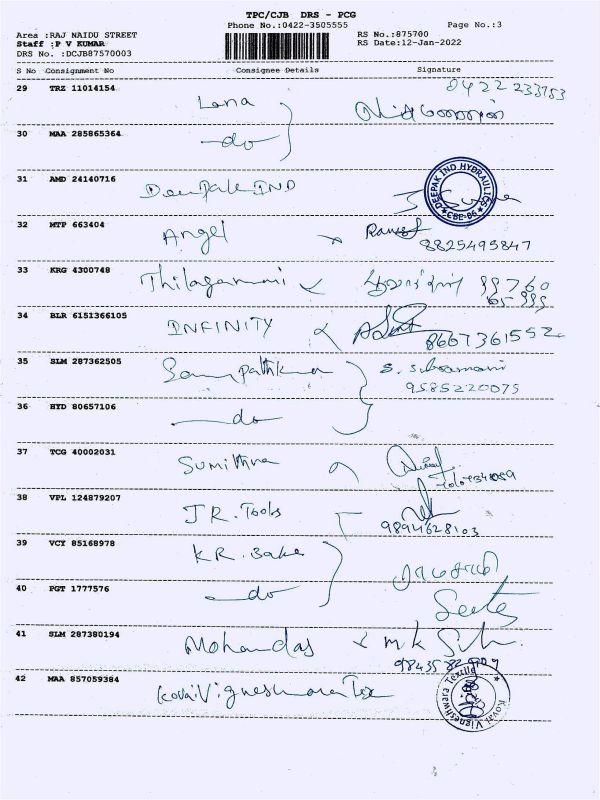 TPC/CJB DRS - PCG
Phone No.:0422-3505555 Page No.:3
Area :RAJ NAIDU STREET RS No.:875700
Staff :P V KUMAR RS Date:12-Jan-2022
DRS No. :DCJB87570003
S No Consignment No Consignee Details Signature
29 TRZ 11014154 Lana 0422 233753
30 MAA 285865364 -do
31 AMD 24140716 Deepak IND DEEPAK IND.HYDRAULICS CBE-06
32 MTP 663404 Angel 8825495847
33 KRG 4300748 Thilagamani
34 BLR 6151366105 INFINITY 8667361552
35 SLM 287362505 Sampathkumar S. Subramani
9585220075
36 HYD 80657106 -do
37 TCG 40002031 Sumithra
38 VPL 124879207 J.R. Tools
9894628103
39 VCY 85168978 K.R. Bake
40 PGT 1777576 -do
41 SLM 287380194 Mohandas
42 MAA 857059384 Kovai Vigneshwara Tex Kovai Vigneshwara Textile